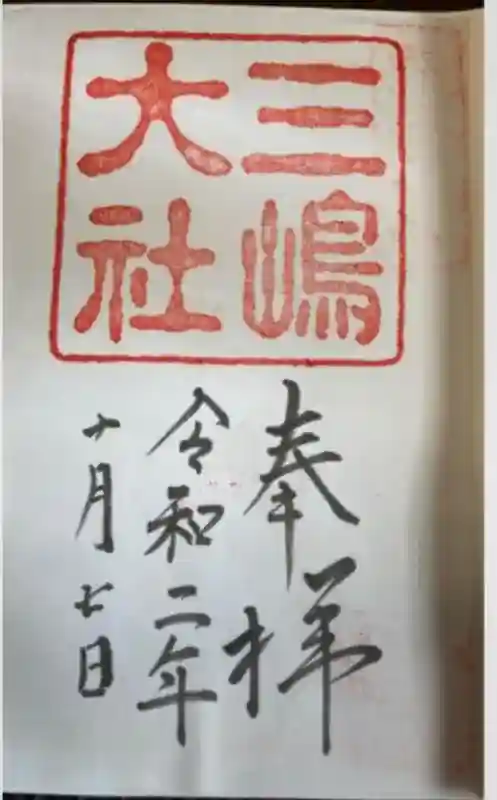 三嶋
大社
奉拝
令和二年
十月七日